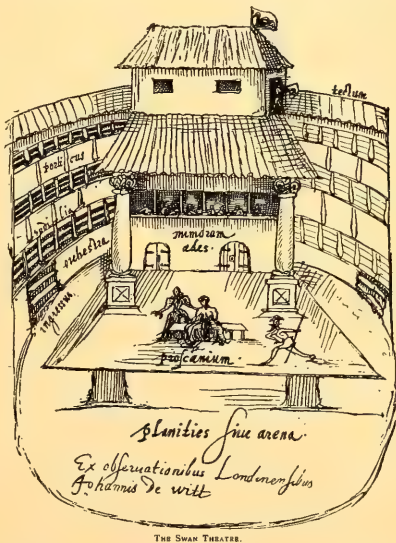 tectum
porticus
sedilia
orchestra
ingressus
mimorum
ædes.
proscænium.
planities sive arena.
Ex observationibus Londinensibus
Johannis De witt
THE SWAN THEATRE.